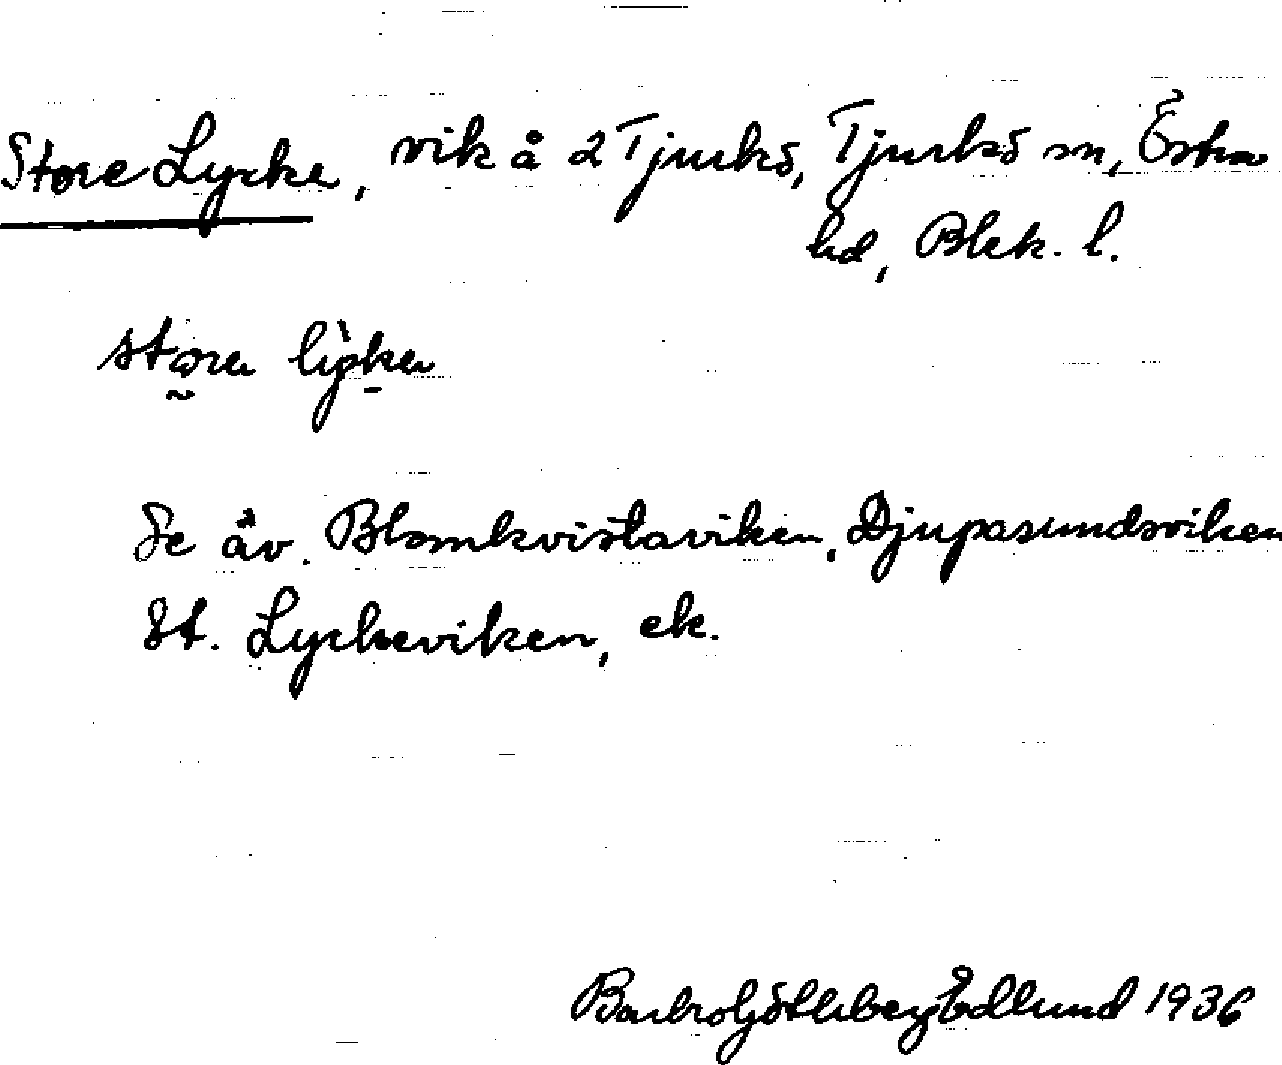 Store Lycke, vik å 2 Tjurkö, Tjurkö sn, Östra
hd, Blek. l.
stora lỳka
Se äv. Blomkvistaviken, Djupasundsviken
St. Lyckeviken, ek.
Barbro Götlberg Edlund 1936